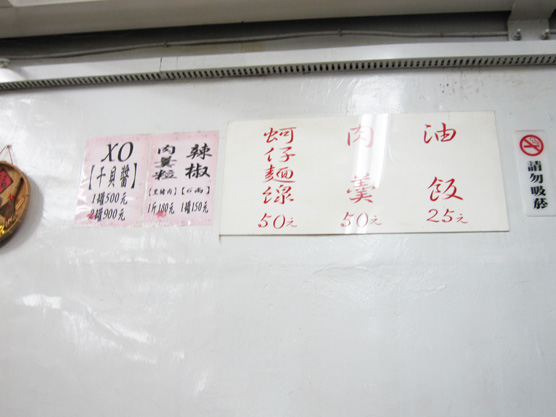 XO
【干貝醬】
1罐500元
2罐900元
肉羹粒
【里豬肉】
1斤180元
辣椒
1罐150元
蚵仔麵線
50元
肉羹
50元
油飯
25元
請勿吸菸